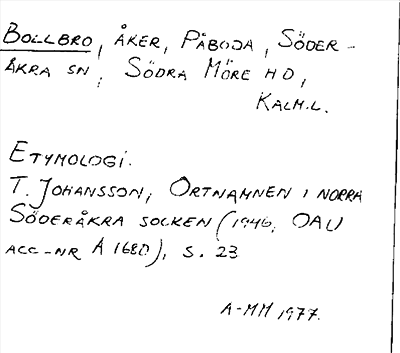 BOLLBRO, ÅKER, PÅBODA, SÖDER-
ÅKRA SN, SÖDRA MÖRE HD,
KALM.L.
ETYMOLOGI.
T. JOHANSSON, ORTNAMNEN I NORRA
SÖDERÅKRA SOCKEN (1946, OAU
ACC-NR A 1680), S. 23
A-MM 1977.